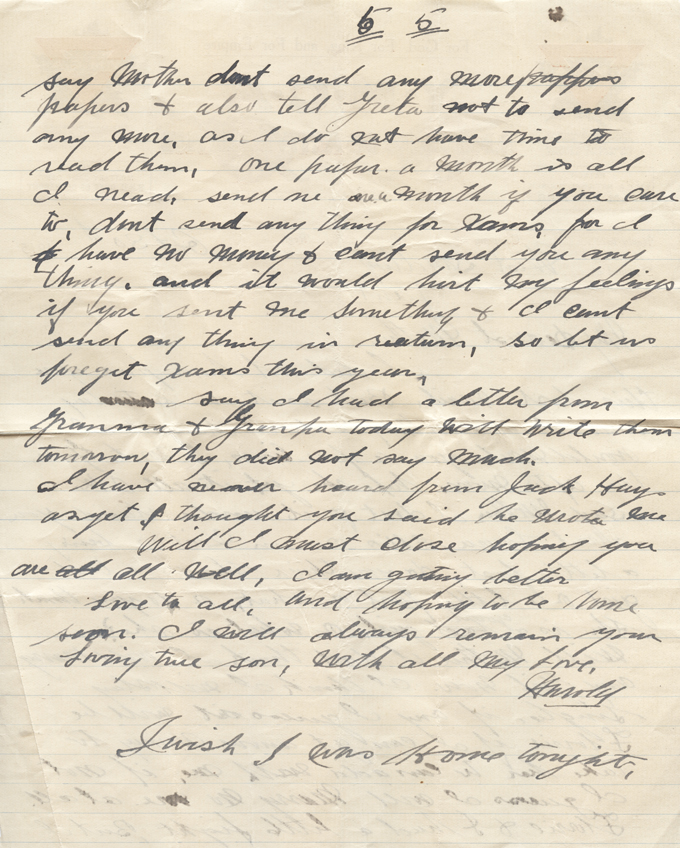 5 5
say Mother dont send any more
papers & also tell Greta not to send
any more, as I do not have time to
read them, one paper. a month is all
I read, send me one a month if you care
to, dont send any thing for Xams, for I
have no money & cant send you any
thing. and it would hirt my feelings
if you sent me something & I cant
send any thing in reaturn, so let us
foreget Xams this year,
say I had a letter from
Granma & Granpa today will write them
tomorrow, they did not say much.
I have never heard from Jack Hays
as yet. I thought you said he wrote me
Will I must close hoping you
are all well, I am getting better
Love to all, and hoping to be home
soon. I will always remain your
loving true son, with all my love,
Harold
I wish I was Home tonight,